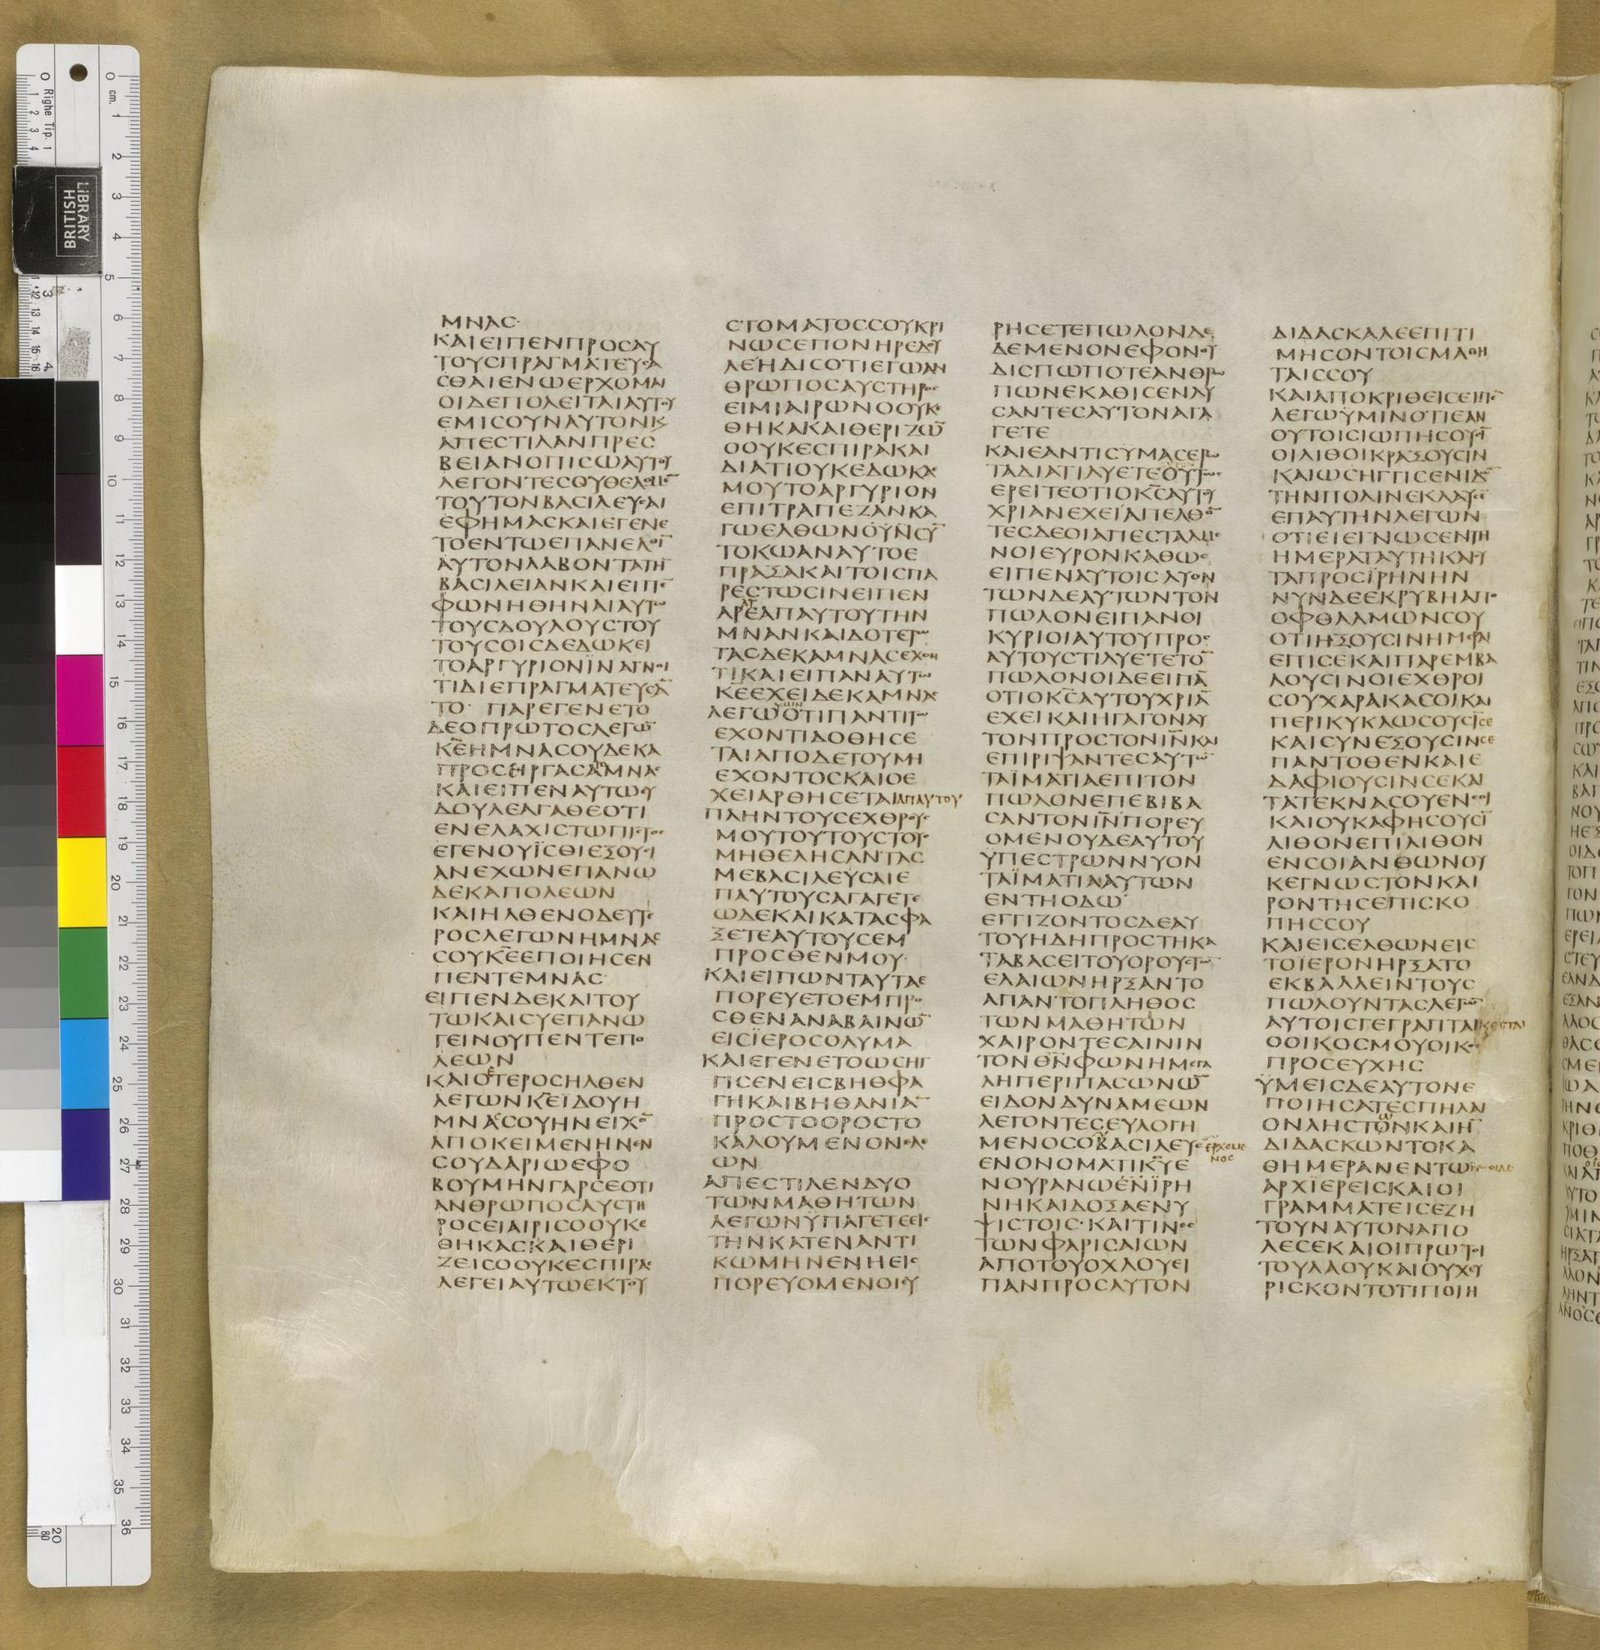 ΜΝΑС
ΚΑΙΕΙΠΕΝΠΡΟСΑΥ
ΤΟΥСΠΡΑΓΜΑΤΕΥСΑ
СΘΑΙΕΝΩΕΡΧΟΜΑΙ
ΟΙΔΕΠΟΛΕΙΤΑΙΑΥΤΟΥ
ΕΜΙСΟΥΝΑΥΤΟΝΚΑΙ
ΑΠΕСΤΙΛΑΝΠΡΕС
ΒΕΙΑΝΟΠΙСΩΑΥΤΟΥ
ΛΕΓΟΝΤΕСΟΥΘΕΛΟΜΕ̅
ΤΟΥΤΟΝΒΑСΙΛΕΥСΑΙ
ΕΦΗΜΑСΚΑΙΕΓΕΝΕ
ΤΟΕΝΤΩΕΠΑΝΕΛΘΙ̅
ΑΥΤΟΝΛΑΒΟΝΤΑΤΗ̅
ΒΑСΙΛΕΙΑΝΚΑΙΕΙΠΕ̅
ΦΩΝΗΘΗΝΑΙΑΥΤΩ
ΤΟΥСΔΟΥΛΟΥСΤΟΥ
ΤΟΥСΟΙСΔΕΔΩΚΕΙ
ΤΟΑΡΓΥΡΙΟΝΪΝΑΓΝΟΙ
ΤΙΔΙΕΠΡΑΓΜΑΤΕΥСΑ̅
ΤΟ· ΠΑΡΕΓΕΝΕΤΟ
ΔΕΟΠΡΩΤΟСΛΕΓΩ̅
Κ̅Ε̅ΗΜΝΑСΟΥΔΕΚΑ
ΠΡΟСΗΡΓΑСΑΤΟΜΝΑС
ΚΑΙΕΙΠΕΝΑΥΤΩΕΥ
ΔΟΥΛΕΑΓΑΘΕΟΤΙ
ΕΝΕΛΑΧΙСΤΩΠΙСΤΟС
ΕΓΕΝΟΥΪСΘΙΕΞΟΥСΙ
ΑΝΕΧΩΝΕΠΑΝΩ
ΔΕΚΑΠΟΛΕΩΝ
ΚΑΙΗΛΘΕΝΟΔΕΥΤΕ
ΡΟСΛΕΓΩΝΗΜΝΑС
СΟΥΚ̅Ε̅ΕΠΟΙΗСΕΝ
ΠΕΝΤΕΜΝΑС
ΕΙΠΕΝΔΕΚΑΙΤΟΥ
ΤΩΚΑΙСΥΕΠΑΝΩ
ΓΕΙΝΟΥΠΕΝΤΕΠΟ
ΛΕΩΝ
ΚΑΙΟΕΤΕΡΟСΗΛΘΕΝ
ΛΕΓΩΝΚ̅Ε̅ΪΔΟΥΗ
ΜΝΑСΟΥΗΝΕΙΧΟ̅
ΑΠΟΚΕΙΜΕΝΗΝΕΝ
СΟΥΔΑΡΙΩΕΦΟ
ΒΟΥΜΗΝΓΑΡСΕΟΤΙ
ΑΝΘΡΩΠΟСΑΥСΤΗ
ΡΟСΕΙΑΙΡΙСΟΟΥΚΕ
ΘΗΚΑСΚΑΙΘΕΡΙ
ΖΕΙСΟΟΥΚΕСΠΙΡΑС
ΛΕΓΕΙΑΥΤΩΕΚΤΟΥ
СΤΟΜΑΤΟССΟΥΚΡΙ
ΝΩСΕΠΟΝΗΡΕΔΟΥ
ΛΕΗΔΙСΟΤΙΕΓΩΑΝ
ΘΡΩΠΟСΑΥСΤΗΡΟС
ΕΙΜΙΑΙΡΩΝΟΟΥΚΕ
ΘΗΚΑΚΑΙΘΕΡΙΖΩ̅
ΟΟΥΚΕСΠΙΡΑΚΑΙ
ΔΙΑΤΙΟΥΚΕΔΩΚΑС
ΜΟΥΤΟΑΡΓΥΡΙΟΝ
ΕΠΙΤΡΑΠΕΖΑΝΚΑ
ΓΩΕΛΘΩΝΟΥΝСΥ̅
ΤΟΚΩΑΝΑΥΤΟΕ
ΠΡΑΞΑΚΑΙΤΟΙСΠΑ
ΡΕСΤΩСΙΝΕΙΠΕΝ
ΑΡΑΤΕΑΠΑΥΤΟΥΤΗΝ
ΜΝΑΝΚΑΙΔΟΤΕΤΩ
ΤΑСΔΕΚΑΜΝΑСΕΧΟΝ
ΤΙΚΑΙΕΙΠΑΝΑΥΤΩ
Κ̅Ε̅ΕΧΕΙΔΕΚΑΜΝΑС
ΛΕΓΩΫΜΙΝΟΤΙΠΑΝΤΙΤΩ
ΕΧΟΝΤΙΔΟΘΗСΕ
ΤΑΙΑΠΟΔΕΤΟΥΜΗ
ΕΧΟΝΤΟСΚΑΙΟΕ
ΧΕΙΑΡΘΗСΕΤΑΙΑΠΑΥΤΟΥ
ΠΛΗΝΤΟΥСΕΧΘΡΟΥС
ΜΟΥΤΟΥΤΟΥСΤΟΥС
ΜΗΘΕΛΗСΑΝΤΑС
ΜΕΒΑСΙΛΕΥСΑΙΕ
ΠΑΥΤΟΥСΑΓΑΓΕΤΕ
ΩΔΕΚΑΙΚΑΤΑСΦΑ
ΞΕΤΕΑΥΤΟΥСΕΜ
ΠΡΟСΘΕΝΜΟΥ
ΚΑΙΕΙΠΩΝΤΑΥΤΑΕ
ΠΟΡΕΥΕΤΟΕΜΠΡΟ
СΘΕΝΑΝΑΒΑΙΝΩ̅
ΕΙСΪΕΡΟСΟΛΥΜΑ
ΚΑΙΕΓΕΝΕΤΟΩСΗΓ
ΓΙСΕΝΕΙСΒΗΘΦΑ
ΓΗΚΑΙΒΗΘΑΝΙΑ̅
ΠΡΟСΤΟΟΡΟСΤΟ
ΚΑΛΟΥΜΕΝΟΝΕΛΕ
ΩΝ
ΑΠΕСΤΙΛΕΝΔΥΟ
ΤΩΝΜΑΘΗΤΩΝ
ΛΕΓΩΝΫΠΑΓΕΤΕΕΙС
ΤΗΝΚΑΤΕΝΑΝΤΙ
ΚΩΜΗΝΕΝΗΕΙС
ΠΟΡΕΥΟΜΕΝΟΙΕΥ
ΡΗСΕΤΕΠΩΛΟΝΔΕ
ΔΕΜΕΝΟΝΕΦΟΝΟΥ
ΔΙСΠΩΠΟΤΕΑΝΘΡΩ
ΠΩΝΕΚΑΘΙСΕΝΛΥ
СΑΝΤΕСΑΥΤΟΝΑΓΑ
ΓΕΤΕ
ΚΑΙΕΑΝΤΙСΫΜΑСΕΡΩ
ΤΑΔΙΑΤΙΛΥΕΤΕΟΥΤΩС
ΕΡΕΙΤΕΟΤΙΟΚ̅С̅ΑΥΤΟΥ
ΧΡΙΑΝΕΧΕΙΑΠΕΛΘΟ̅
ΤΕСΔΕΟΙΑΠΕСΤΑΛΜΕ
ΝΟΙΕΥΡΟΝΚΑΘΩС
ΕΙΠΕΝΑΥΤΟΙСΛΥΟΝ
ΤΩΝΔΕΑΥΤΩΝΤΟΝ
ΠΩΛΟΝΕΙΠΑΝΟΙ
ΚΥΡΙΟΙΑΥΤΟΥΠΡΟС
ΑΥΤΟΥСΤΙΛΥΕΤΕΤΟ̅
ΠΩΛΟΝΟΙΔΕΕΙΠΑ̅
ΟΤΙΟΚ̅С̅ΑΥΤΟΥΧΡΙΑ̅
ΕΧΕΙΚΑΙΗΓΑΓΟΝΑΥ
ΤΟΝΠΡΟСΤΟΝΙ̅Ν̅ΚΑΙ
ΕΠΙΡΙΨΑΝΤΕСΑΥΤΩ̅
ΤΑΪΜΑΤΙΑΕΠΙΤΟΝ
ΠΩΛΟΝΕΠΕΒΙΒΑ
СΑΝΤΟΝΙ̅Ν̅ΠΟΡΕΥ
ΟΜΕΝΟΥΔΕΑΥΤΟΥ
ΥΠΕСΤΡΩΝΝΥΟΝ
ΤΑΪΜΑΤΙΑΑΥΤΩΝ
ΕΝΤΗΟΔΩ
ΕΓΓΙΖΟΝΤΟСΔΕΑΥ
ΤΟΥΗΔΗΠΡΟСΤΗΚΑ
ΤΑΒΑСΕΙΤΟΥΟΡΟΥСΤΩ̅
ΕΛΑΙΩΝΗΡΞΑΝΤΟ
ΑΠΑΝΤΟΠΛΗΘΟС
ΤΩΝΜΑΘΗΤΩΝ
ΧΑΙΡΟΝΤΕСΑΙΝΙΝ
ΤΟΝΘ̅Ν̅ΦΩΝΗΜΕΓΑ
ΛΗΠΕΡΙΠΑСΩΝΩ̅
ΕΙΔΟΝΔΥΝΑΜΕΩΝ
ΛΕΓΟΝΤΕСΕΥΛΟΓΗ
ΜΕΝΟСΟΒΑСΙΛΕΥСΕΡΧΟΜΕ
ΝΟС
ΕΝΟΝΟΜΑΤΙΚ̅Υ̅Ε
ΝΟΥΡΑΝΩΕΝΪΡΗ
ΝΗΚΑΙΔΟΞΑΕΝΥ
ΨΙСΤΟΙС·ΚΑΙΤΙΝΕС
ΤΩΝΦΑΡΙСΑΙΩΝ
ΑΠΟΤΟΥΟΧΛΟΥΕΙ
ΠΑΝΠΡΟСΑΥΤΟΝ
ΔΙΔΑСΚΑΛΕΕΠΙΤΙ
ΜΗСΟΝΤΟΙСΜΑΘΗ
ΤΑΙССΟΥ
ΚΑΙΑΠΟΚΡΙΘΕΙСΕΙΠΕ̅
ΛΕΓΩΫΜΙΝΟΤΙΕΑΝ
ΟΥΤΟΙСΙΩΠΗСΟΥСΙ̅
ΟΙΛΙΘΟΙΚΡΑΞΟΥСΙΝ
ΚΑΙΩСΗΓΓΙСΕΝΙΔΩ̅
ΤΗΝΠΟΛΙΝΕΚΛΑΥСΕ̅
ΕΠΑΥΤΗΝΛΕΓΩΝ
ΟΤΙΕΙΕΓΝΩСΕΝΤΗ
ΗΜΕΡΑΤΑΥΤΗΚΑΙСΥ
ΤΑΠΡΟСΪΡΗΝΗΝ
ΝΥΝΔΕΕΚΡΥΒΗΑΠΟ
ΟΦΘΑΛΜΩΝСΟΥ
ΟΤΙΗΞΟΥСΙΝΗΜΕΡΑΙ
ΕΠΙСΕΚΑΙΠΑΡΕΜΒΑ
ΛΟΥСΙΝΟΙΕΧΘΡΟΙ
СΟΥΧΑΡΑΚΑСΟΙΚΑΙ
ΠΕΡΙΚΥΚΛΩСΟΥСΙ̅СΕ
ΚΑΙСΥΝΕΞΟΥСΙΝСΕ
ΠΑΝΤΟΘΕΝΚΑΙΕ
ΔΑΦΙΟΥСΙΝСΕΚΑΙ
ΤΑΤΕΚΝΑСΟΥΕΝСΟΙ
ΚΑΙΟΥΚΑΦΗСΟΥСΙ̅
ΛΙΘΟΝΕΠΙΛΙΘΟΝ
ΕΝСΟΙΑΝΘΩΝΟΥ
ΚΕΓΝΩСΤΟΝΚΑΙ
ΡΟΝΤΗСΕΠΙСΚΟ
ΠΗССΟΥ
ΚΑΙΕΙСΕΛΘΩΝΕΙС
ΤΟΪΕΡΟΝΗΡΞΑΤΟ
ΕΚΒΑΛΛΕΙΝΤΟΥС
ΠΩΛΟΥΝΤΑСΛΕΓΩ̅
ΑΥΤΟΙСΓΕΓΡΑΠΤΑΙΚΕСΤΑΙ
ΟΟΙΚΟСΜΟΥΟΙΚΟС
ΠΡΟСΕΥΧΗС
ΫΜΕΙСΔΕΑΥΤΟΝΕ
ΠΟΙΗСΑΤΕСΠΗΛΑΙ
ΟΝΛΗСΤΩΝΚΑΙΗ̅
ΔΙΔΑСΚΩΝΤΟΚΑ
ΘΗΜΕΡΑΝΕΝΤΩ
ΑΡΧΪΕΡΕΙСΚΑΙΟΙ
ΓΡΑΜΜΑΤΕΙСΕΖΗ
ΤΟΥΝΑΥΤΟΝΑΠΟ
ΛΕСΕΚΑΙΟΙΠΡΩΤΟΙ
ΤΟΥΛΑΟΥΚΑΙΟΥΧΕΥ
ΡΙСΚΟΝΤΟΤΙΠΟΙΗ
LIBRARY
BRITISH
Righe Tip. 1
cm.